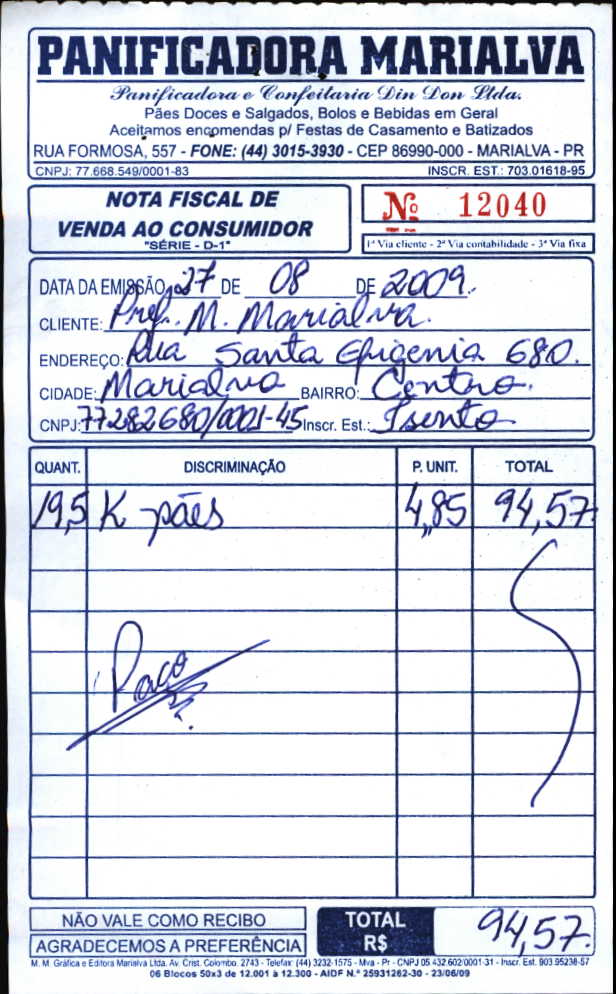 PANIFICADORA MARIALVA
Panificadora e Confeitaria Din Don Ltda.
Pães Doces e Salgados, Bolos e Bebidas em Geral
Aceitamos encomendas p/ Festas de Casamento e Batizados
RUA FORMOSA, 557 - FONE: (44) 3015-3930 - CEP 86990-000 - MARIALVA - PR
CNPJ: 77.668.549/0001-83 INSCR. EST.: 703.01618-95
NOTA FISCAL DE
VENDA AO CONSUMIDOR
"SÉRIE - D-1"
Nº 12040
1ª Via cliente - 2ª Via contabilidade - 3ª Via fixa
DATA DA EMISSÃO 27 DE 08 DE 2009.
CLIENTE: Pref. M. Marialva.
ENDEREÇO: Rua Santa Efigenia 680.
CIDADE: Marialva BAIRRO: Centro.
CNPJ: 77282680/0001-45 Inscr. Est.: Isento
QUANT. DISCRIMINAÇÃO P. UNIT. TOTAL
19,5 K pães 4,85 94,57
NÃO VALE COMO RECIBO
AGRADECEMOS A PREFERÊNCIA
TOTAL R$ 94,57.
M. M. Gráfica e Editora Marialva Ltda. Av. Crist. Colombo, 2743 - Telefax: (44) 3232-1575 - Mva - Pr - CNPJ 05.432.602/0001-31 - Inscr. Est. 903.95238-57
06 Blocos 50x3 de 12.001 à 12.300 - AIDF N.º 25931262-30 - 23/06/09